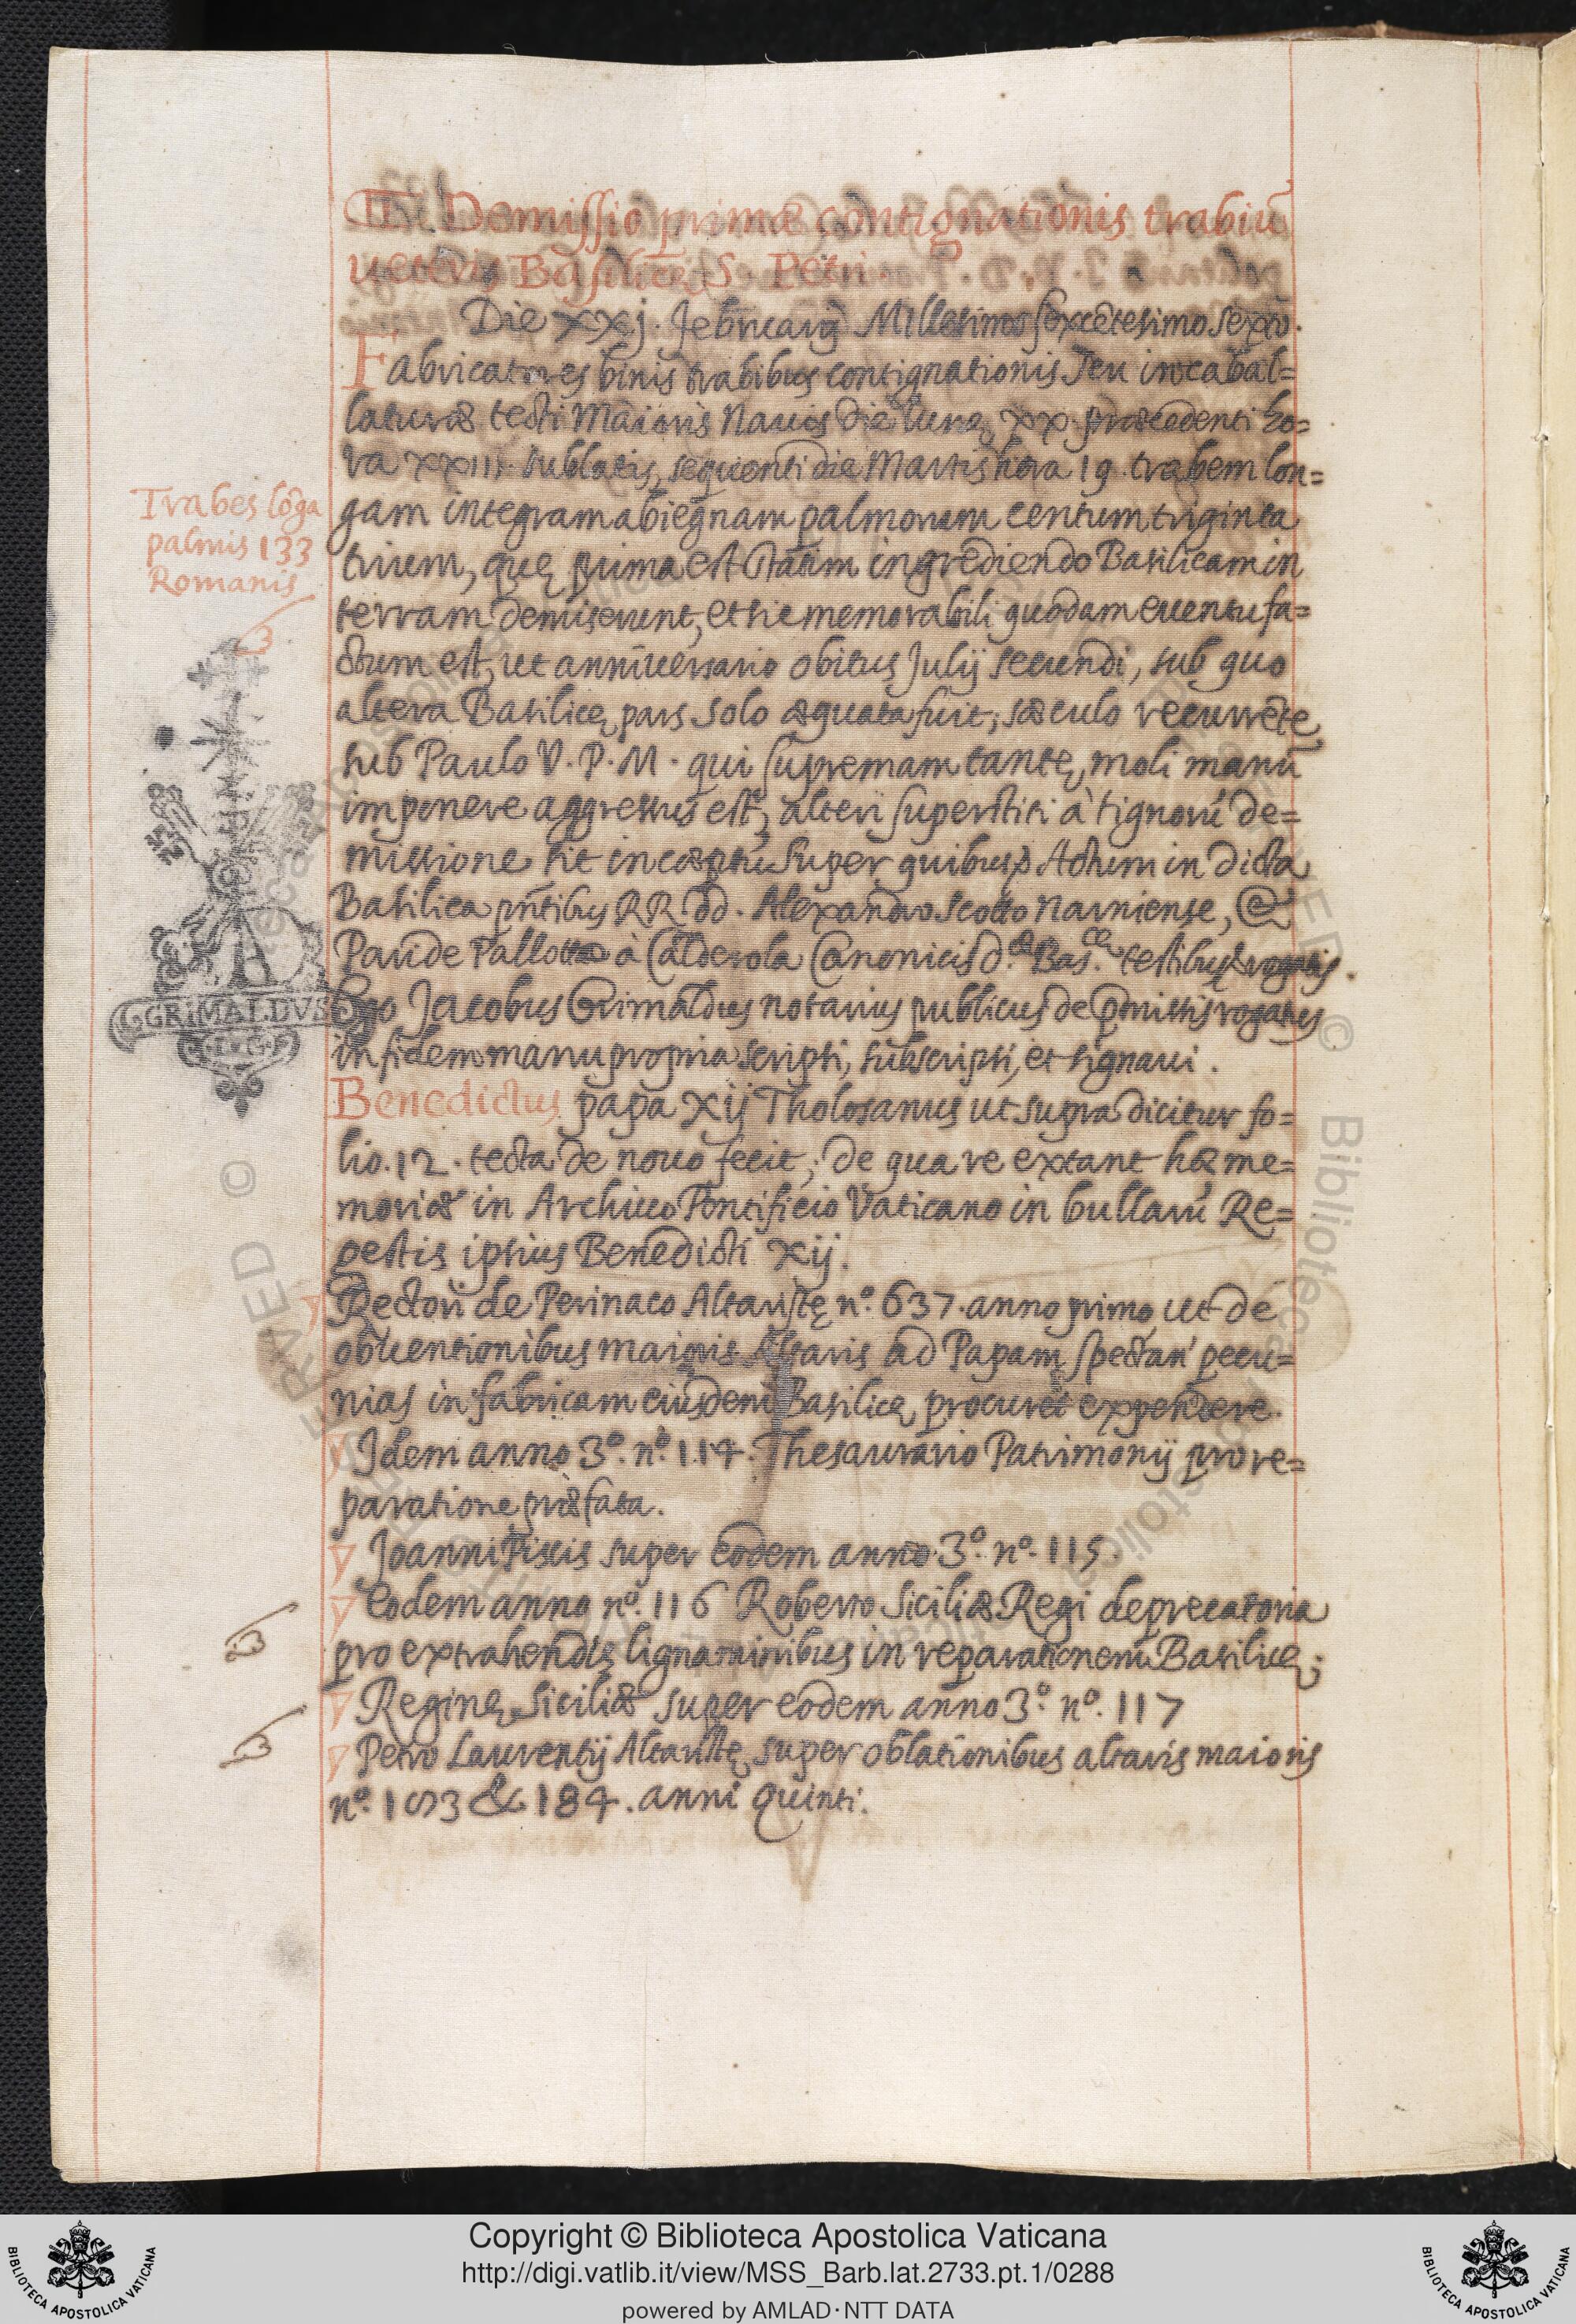 III. Demissio primæ contignationis trabiũ
ueteris Basilicę S. Petri.
Die xxj. Februarij Millesimo sexcẽtesimo sexto.
Fabricatores binis trabibus contignationis seu incabal=
laturæ tecti Maioris Nauis die lunę xx. præcedenti ho=
ra xxiii. sublatis, sequenti die Martis hora 19. trabem lon=
gam integram abiegnam palmorum centum triginta
trium, quę prima est statim ingrediendo Basilicam in
terram demiserunt, et sic memorabili quodam euentu fa=
ctum est, ut anniuersario obitus Julij secundi, sub quo
altera Basilicę pars solo æquata fuit, sæculo recurrẽte
sub Paulo V. P. M. qui supremam tantę moli manũ
imponere aggressus est, alteri superstiti à tignorũ de=
missione sit incæptũ Super quibus Actum in dicta
Basilica pñtibus RR. dd. Alexandro Scotto Narniense, &
Pauide Pallotta à Calderola Canonicis d.æ Bas.cæ testibus rogatis.
Ego Jacobus Grimaldus notarius publicus de p̃missis rogatus
in fidem manu propria scripsi, subscripsi, et signaui.
Trabes lõga
palmis 133
Romanis
GRIMALDVS
Benedictus papa xij Tholosanus ut supra dicitur fo=
lio. 12. tecta de nouo fecit; de qua re extant hæ me=
moriæ in Archiuo Pontificio Vaticano in bullarũ Re=
gestis ipsius Benedicti xij.
Rectori de Perinaco Altaristę nº. 637. anno primo, ut de
obuentionibus maioris Altaris ad Papam spectan' pecu=
nias in fabricam eiusdem Basilicę procuret expendere.
Idem anno 3º. nº. 114. Thesaurario Patrimonij pro re=
paratione præfata.
Joanni Piscis super eodem anno 3º. nº. 115.
Eodem anno nº. 116 Roberto Siciliæ Regi deprecatoria
pro extrahendis lignaminibus in reparationem Basilicę;
Reginę Siciliæ super eodem anno 3º. nº. 117
Petro Laurentij Altaristę super oblationibus altaris maioris
& 184. anni quinti.
Copyright © Biblioteca Apostolica Vaticana
http://digi.vatlib.it/view/MSS_Barb.lat.2733.pt.1/0288
powered by AMLAD·NTT DATA
BIBLIOTECA APOSTOLICA VATICANA
BIBLIOTECA APOSTOLICA VATICANA